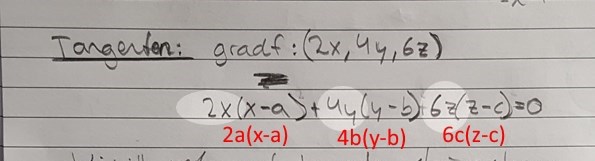 Tangenten: gradf: (2x, 4y, 6z)
2x(x-a)+4y(y-b) 6z(z-c)=0
2a(x-a) 4b(y-b) 6c(z-c)